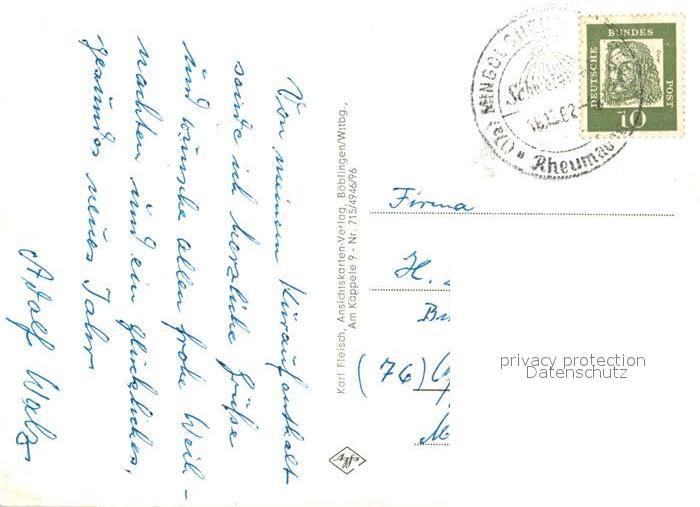 Von meinem Kuraufenthalt
sende ich herzliche Grüße
und wünsche allen frohe Weih-
nachten und ein glückliches,
gesundes neues Jahr
Adolf Walz
Karl Fleisch, Ansichtskarten-Verlag, Böblingen/Wttbg.,
Am Käppele 9 - Nr. 715/4946/96
agfa
MINGOLSHEIM
Rheuma
DEUTSCHE
BUNDES
POST
10
Firma
H.
(76)
privacy protection
Datenschutz